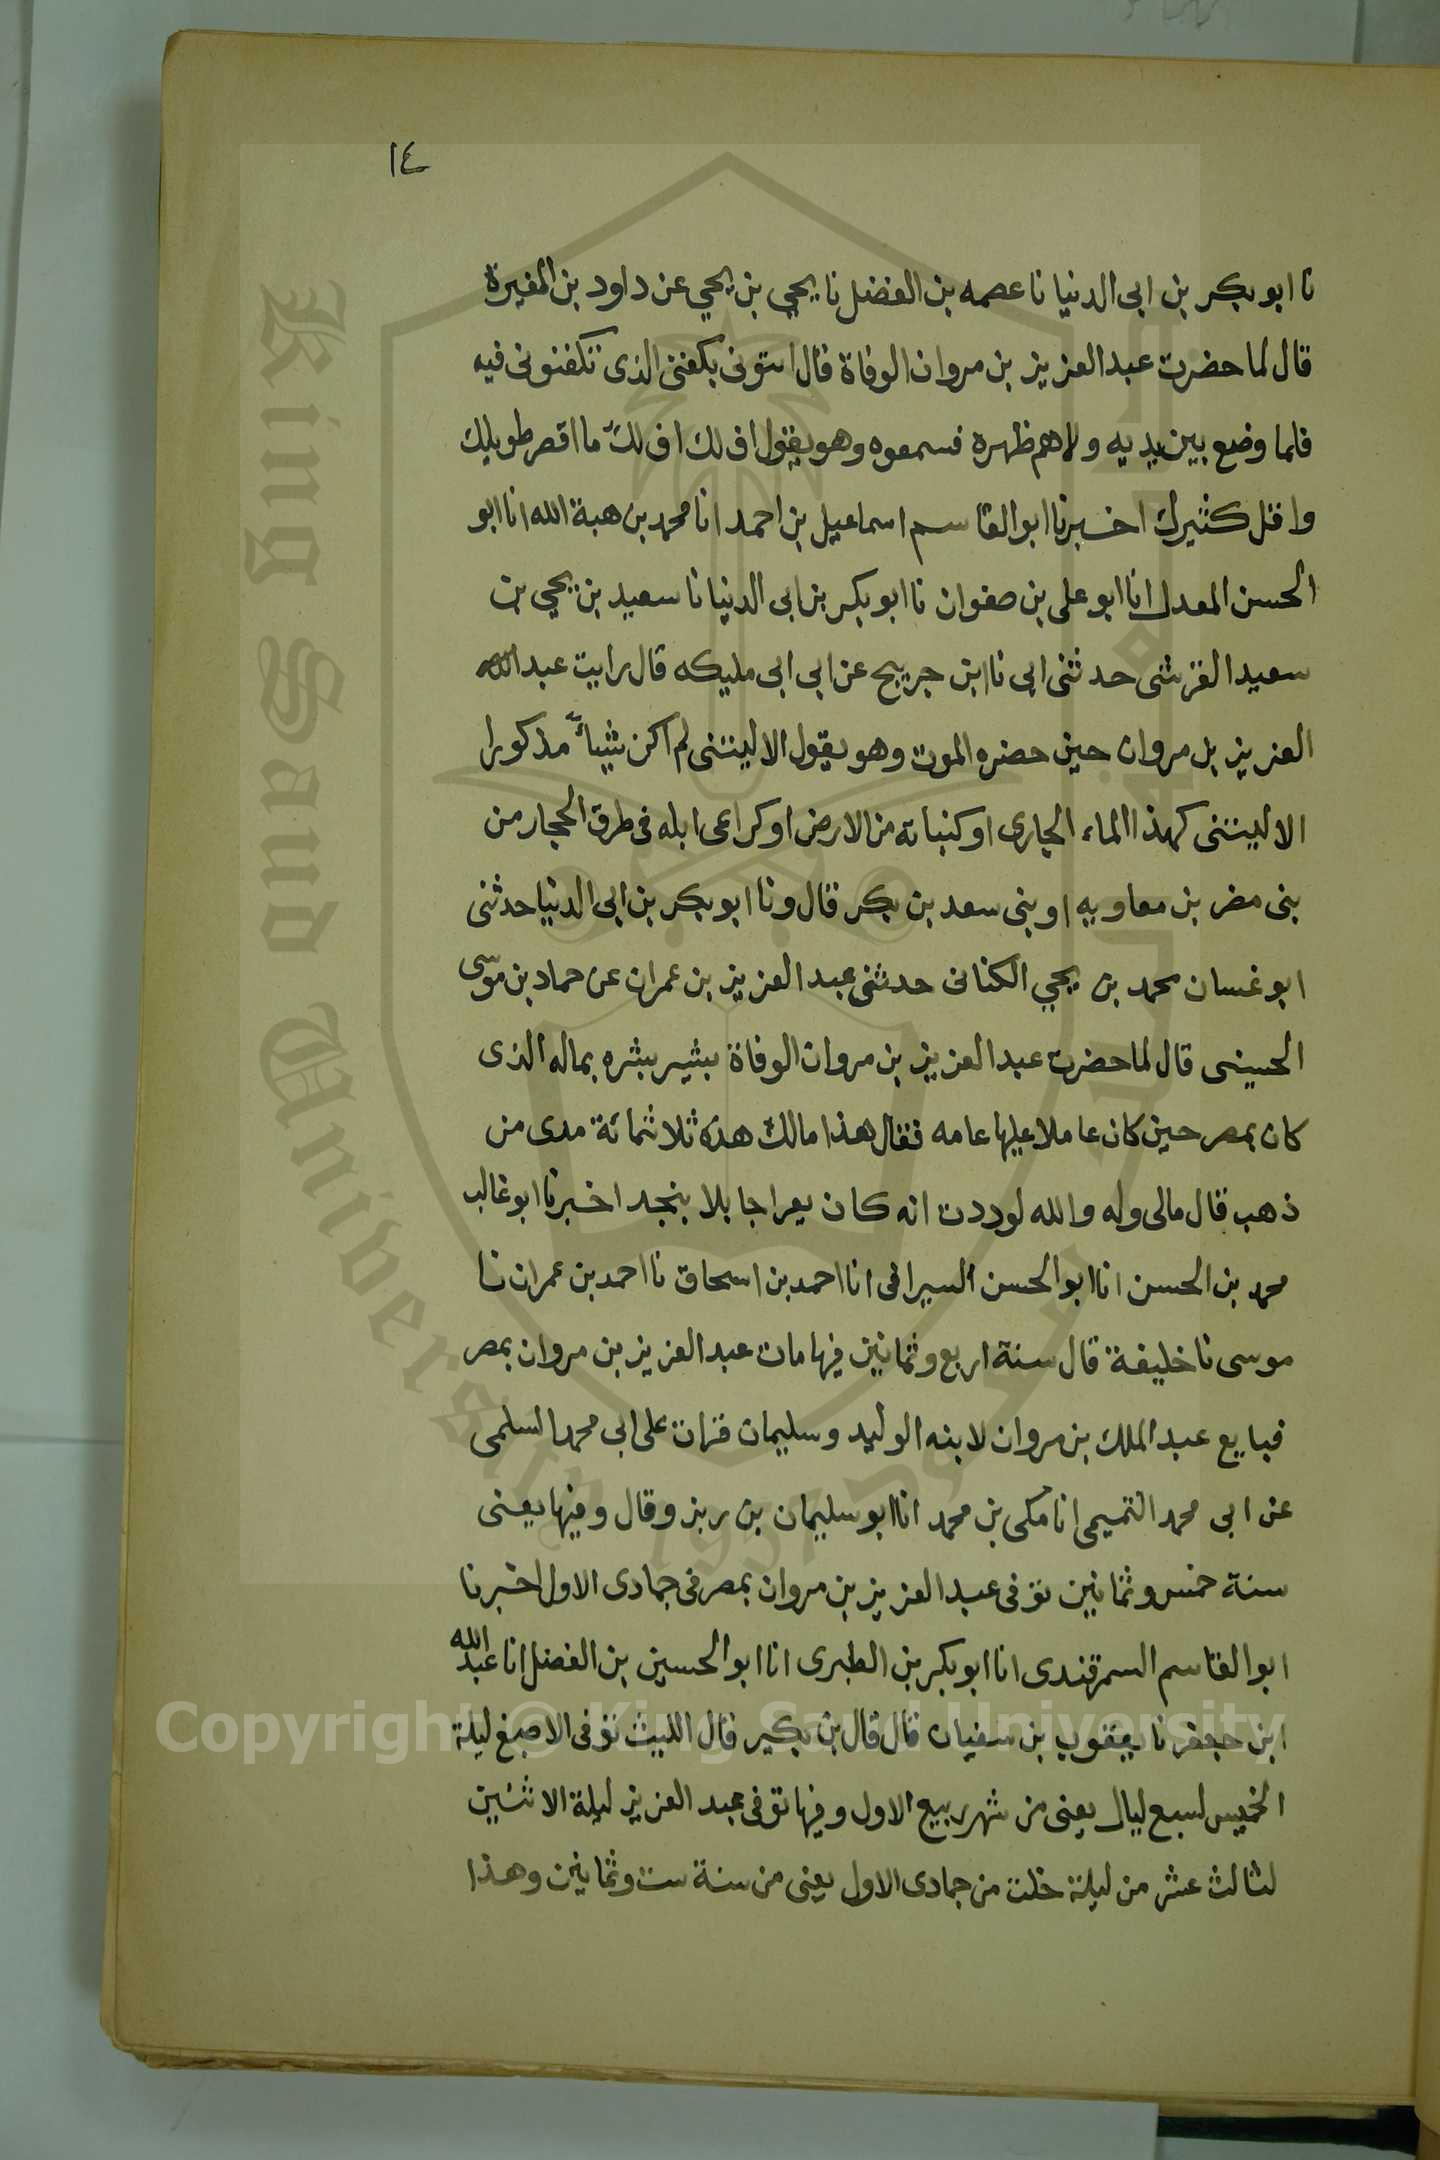 ١٤
نا ابو بكر بن ابى الدنيا نا عصمه بن الفضل نا يحيى بن يحيى عن داود بن المغيرة
قال لما حضرت عبد العزيز بن مروان الوفاة قال ائتونى بكفنى الذى تكفنونى فيه
فلما وضع بين يديه ولاهم ظهره فسمعوه وهو يقول اف لك اف لك ما اقصر طويلك
واقل كثيرك اخبرنا ابو القاسم اسماعيل بن احمد انا محمد بن هبة الله انا ابو
الحسن المعدل انا ابو على بن صفوان نا ابو بكر بن ابى الدنيا نا سعيد بن يحيى بن
سعيد القرشى حدثنى ابى نا ابن جريج عن ابى ابى مليكه قال رايت عبد الله
العزيز بن مروان حين حضره الموت وهو يقول الا ليتنى لم اكن شيئاً مذكورا
الا ليتنى كهذا الماء الجارى او كنباته من الارض او كراعى ابله فى طرق الحجار من
بنى مضر بن معاويه او بنى سعد بن بكر قال ونا ابو بكر بن ابى الدنيا حدثنى
ابو غسان محمد بن يحيى الكنانى حدثنى عبد العزيز بن عمران عن حماد بن موسى
الحسينى قال لما حضرت عبد العزيز بن مروان الوفاة بشير بشره بماله الذى
كان بمصر حين كان عاملا عليها عامه فقال هذا مالك هذه ثلاثمائة مدى من
ذهب قال مالى وله والله لوددت انه كان بعرا جابلا بنجد اخبرنا ابو غالب
محمد بن الحسن انا ابو الحسن السيرافى انا احمد بن اسحاق نا احمد بن عمران نا
موسى نا خليفة قال سنة اربع وثمانين فيها مات عبد العزيز بن مروان بمصر
فبايع عبد الملك بن مروان لابنه الوليد وسليمان قرات على ابى محمد السلمى
عن ابى محمد التميمى انا مكى بن محمد انا ابو سليمان بن ربز وقال وفيها يعنى
سنة خمس وثمانين توفى عبد العزيز بن مروان بمصر فى جمادى الاول اخبرنا
ابو القاسم السمرقندى انا ابو بكر بن الطبرى انا ابو الحسين بن الفضل انا عبد الله
ابن جعفر نا يعقوب بن سفيان قال قال بن بكير قال الليث توفى الاصبغ ليلة
الخميس لسبع ليال يعنى من شهر ربيع الاول وفيها توفى عبد العزيز ليلة الاثنين
لثالث عشر من ليلة خلت من جمادى الاول يعنى من سنة ست وثمانين وهذا
King Saud University
جامعة الملك سعود
1957
Copyright © King Saud University